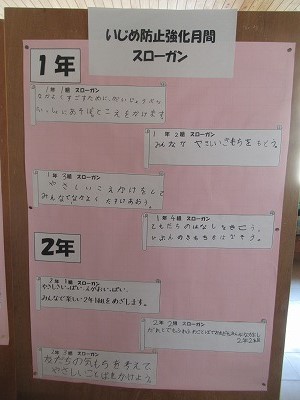 いじめ防止強化月間
スローガン
1年
1年 1組 スローガン
なかよくすごすために、だいじょうぶ
いっしょにあそぼとこえをかけます
1年 2組 スローガン
みんな やさしいきもちをもとう
1年 3組 スローガン
やさしいこえかけをして
みんなでなかよく たすけあおう。
1年4組 スローガン
ともだちのはなしをきこう。
じぶんのきもちを
2年
2年 1組 スローガン
やさしさいっぱい・えがおいっぱい。
みんなで楽しい2年1組をめざします。
2年 2組 スローガン
だれとでもふわふわことばで みんななかよし
2年2組
2年 3組 スローガン
友だちの気もちを考えて
やさしいことばをかけよう